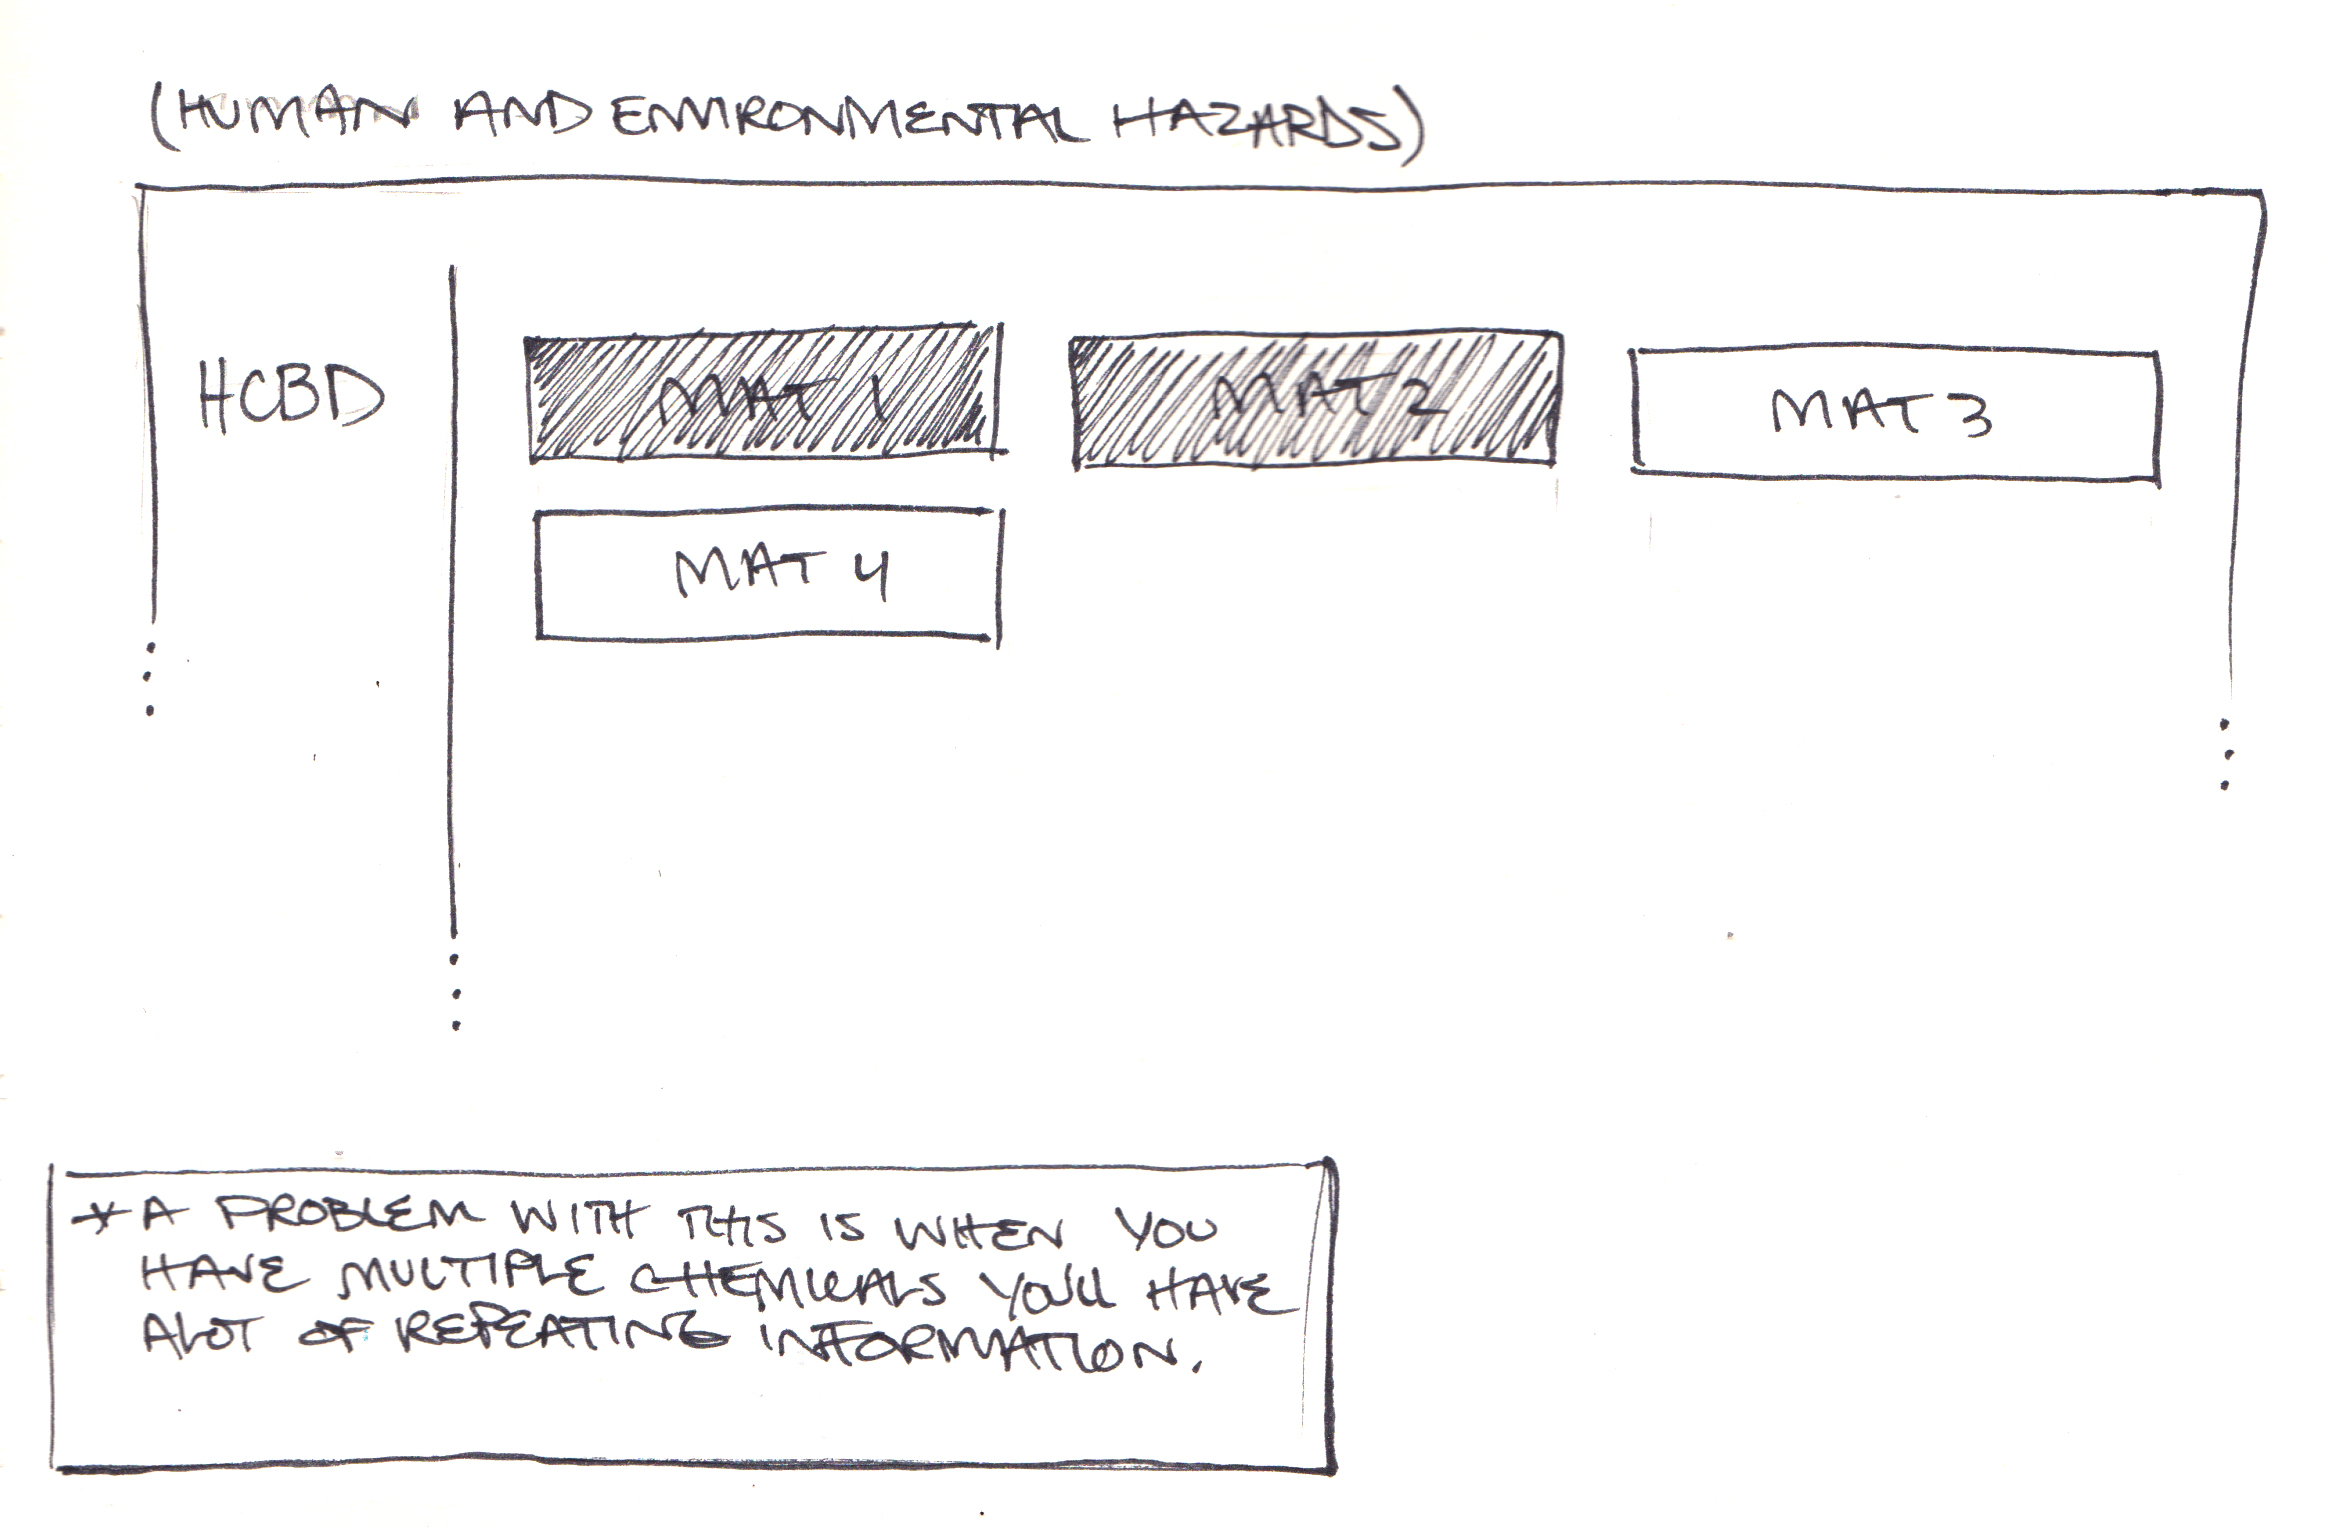 (HUMAN AND ENVIRONMENTAL HAZARDS)
HCBD
MAT 1
MAT 2
MAT 3
MAT 4
*A PROBLEM WITH THIS IS WHEN YOU
HAVE MULTIPLE CHEMICALS YOU'LL HAVE
ALOT OF REPEATING INFORMATION.